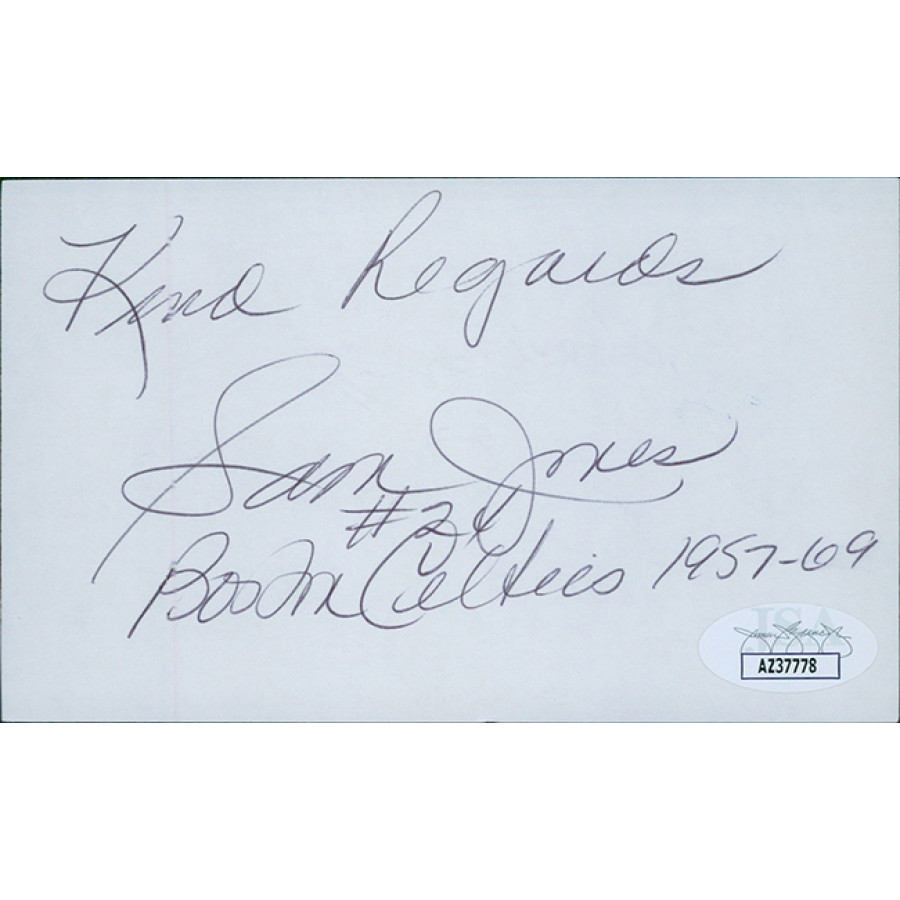 Kind Regards
Sam Jones
#24
Boston Celtics 1957-69
JSA
AZ37778